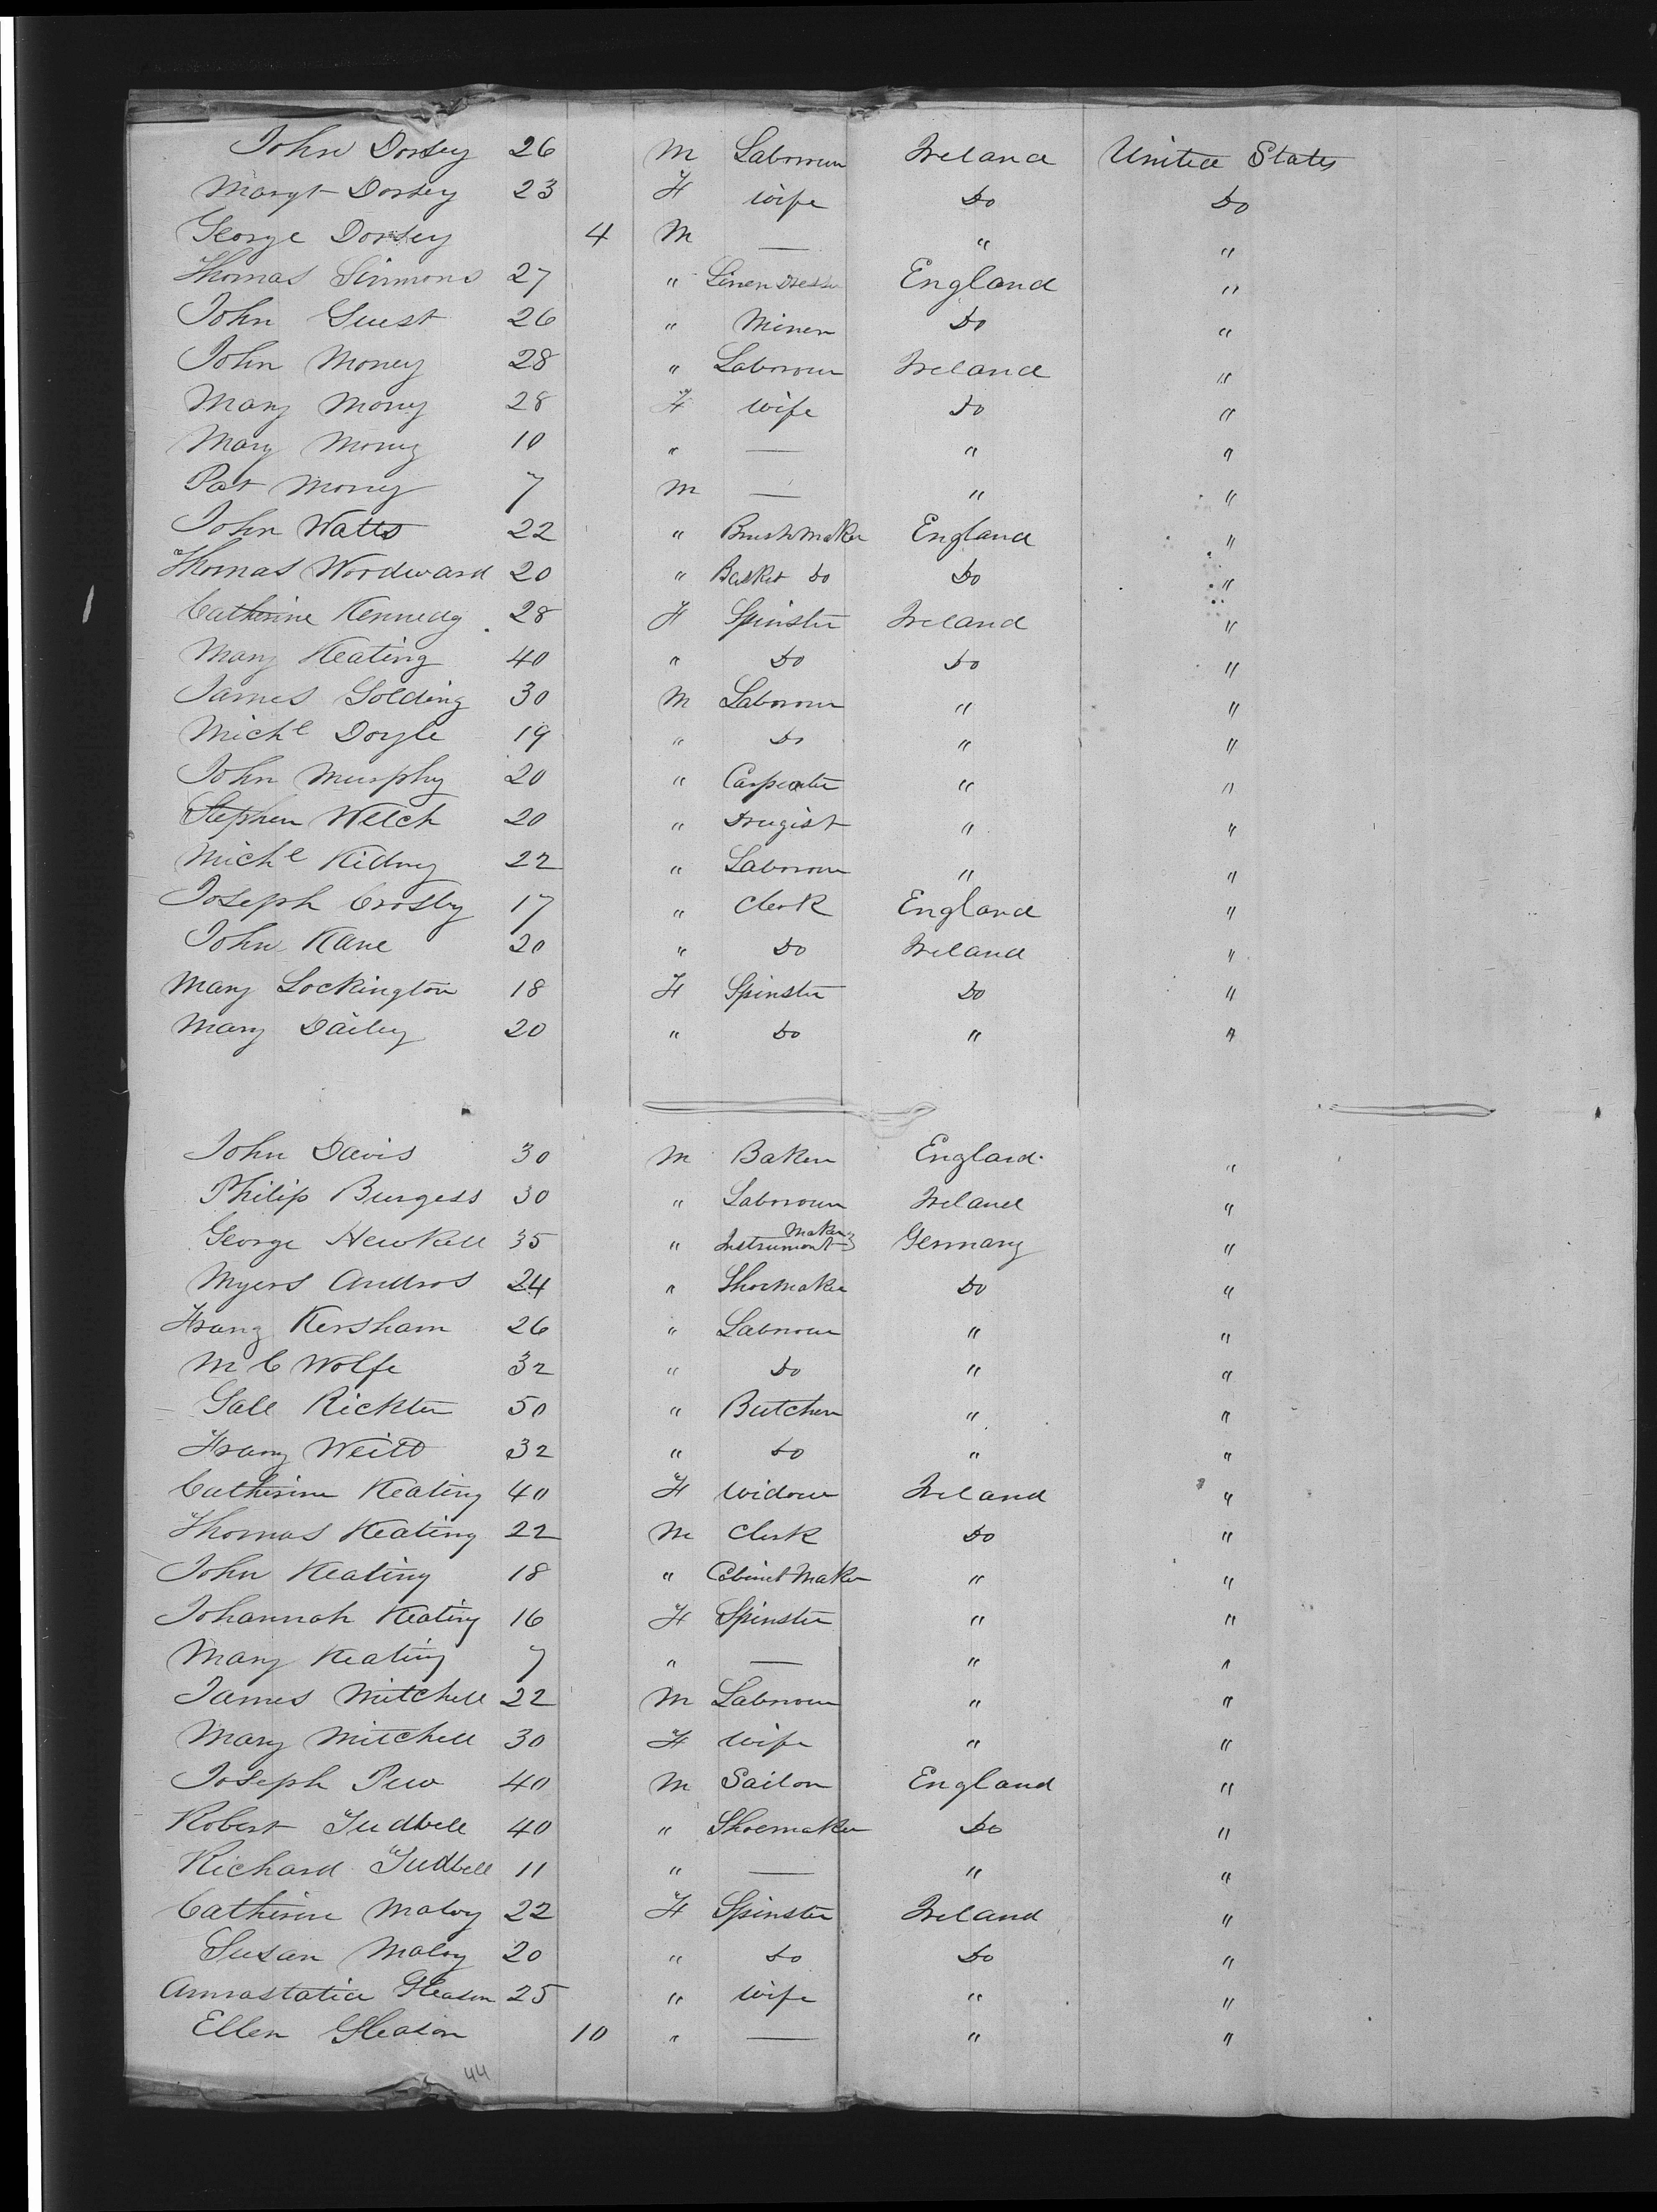 John Dorsey 26 M Labourer Ireland United States
Margt Dorsey 23 F Wife Do Do
George Dorsey 4 M — " "
Thomas Simmons 27 " Linen Dresser England "
John Guest 26 " Miner Do "
John Money 28 " Labourer Ireland "
Mary Money 28 F Wife Do "
Mary Money 10 " — " "
Pat Money 7 M — " "
John Watts 22 " Brushmaker England "
Thomas Woodward 20 " Basket Do Do "
Catherine Kennedy 28 F Spinster Ireland "
Mary Keating 40 " Do Do "
James Golding 30 M Labourer " "
Michl Doyle 19 " Do " "
John Murphy 20 " Carpenter " "
Stephen Welch 20 " Drugist " "
Michl Kidney 22 " Labourer " "
Joseph Crosby 17 " Clerk England "
John Kane 20 " Do Ireland "
Mary Lockington 18 F Spinster Do "
Mary Dailey 20 " Do " "
John Davis 30 M Baker England "
Philip Burgess 30 " Labourer Ireland "
George Hewkell 35 " Instrument Maker Germany "
Myers Andros 24 " Shoemaker Do "
Franz Kersham 26 " Labourer " "
M C Wolfe 32 " Do " "
Gall Rickter 50 " Butcher " "
Franz 32 " Do " "
Catherine Keating 40 F Widow Ireland "
Thomas Keating 22 M Clerk Do "
John Keating 18 " Cabinet Maker " "
Johannah Keating 16 F Spinster " "
Mary Keating 7 " — " "
James Mitchell 22 M Labourer " "
Mary Mitchell 30 F Wife " "
Joseph Pew 40 M Sailor England "
Robert Tudbell 40 " Shoemaker Do "
Richard Tudbell 11 " — " "
Catherine Maloy 22 F Spinster Ireland "
Susan Maloy 20 " Do Do "
Annastatia Gleason 25 " Wife " "
Ellen Gleason 10 " — " "
44